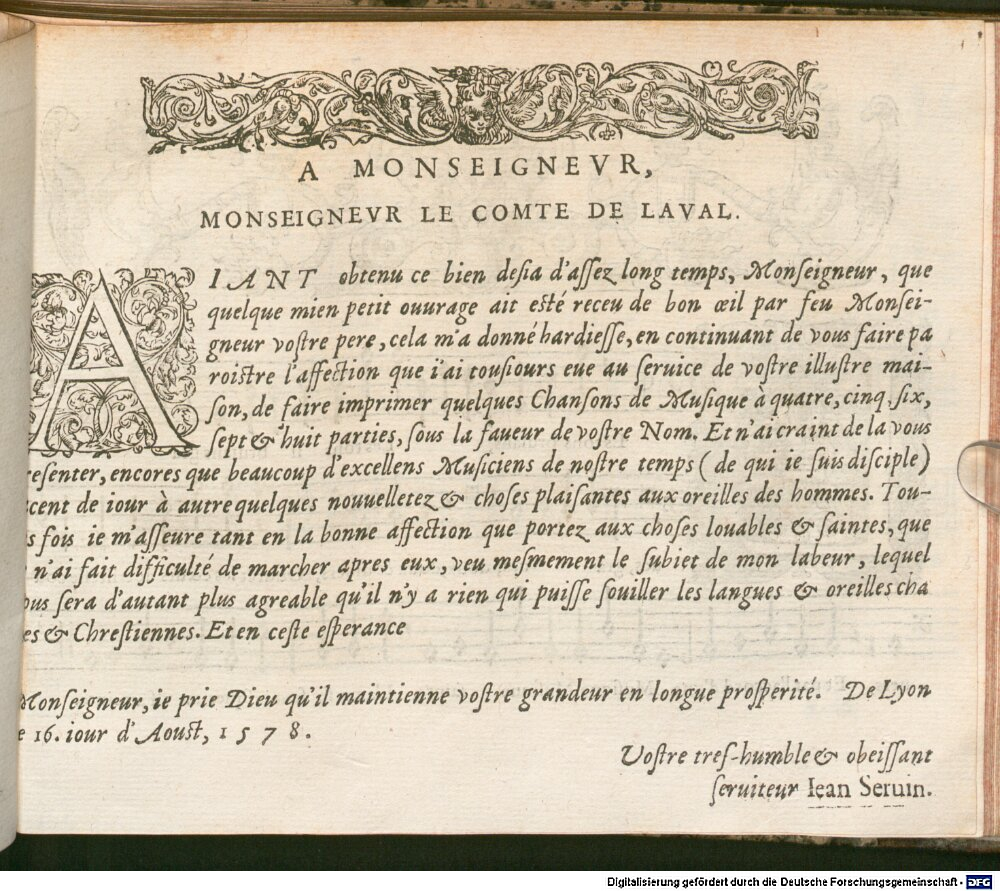 A MONSEIGNEVR,
MONSEIGNEVR LE COMTE DE LAVAL.
AIANT obtenu ce bien desia d'assez long temps, Monseigneur, que
quelque mien petit ouurage ait esté receu de bon œil par feu Monsei-
gneur vostre pere, cela m'a donné hardiesse, en continuant de vous faire pa
roistre l'affection que i'ai tousiours eue au seruice de vostre illustre mai-
son, de faire imprimer quelques Chansons de Musique à quatre, cinq, six,
sept & huit parties, sous la faueur de vostre Nom. Et n'ai craint de la vous
resenter, encores que beaucoup d'excellens Musiciens de nostre temps ( de qui ie suis disciple )
cent de iour à autre quelques nouuelletez & choses plaisantes aux oreilles des hommes. Tou-
s fois ie m'asseure tant en la bonne affection que portez aux choses louables & saintes, que
n'ai fait difficulté de marcher apres eux, veu mesmement le subiet de mon labeur, lequel
ous sera d'autant plus agreable qu'il n'y a rien qui puisse souiller les langues & oreilles cha
es & Chrestiennes. Et en ceste esperance
Monseigneur, ie prie Dieu qu'il maintienne vostre grandeur en longue prosperité. De Lyon
e 16. iour d'Aoust, 1578.
Vostre tres-humble & obeissant
seruiteur Iean Seruin.
Digitalisierung gefördert durch die Deutsche Forschungsgemeinschaft - DFG